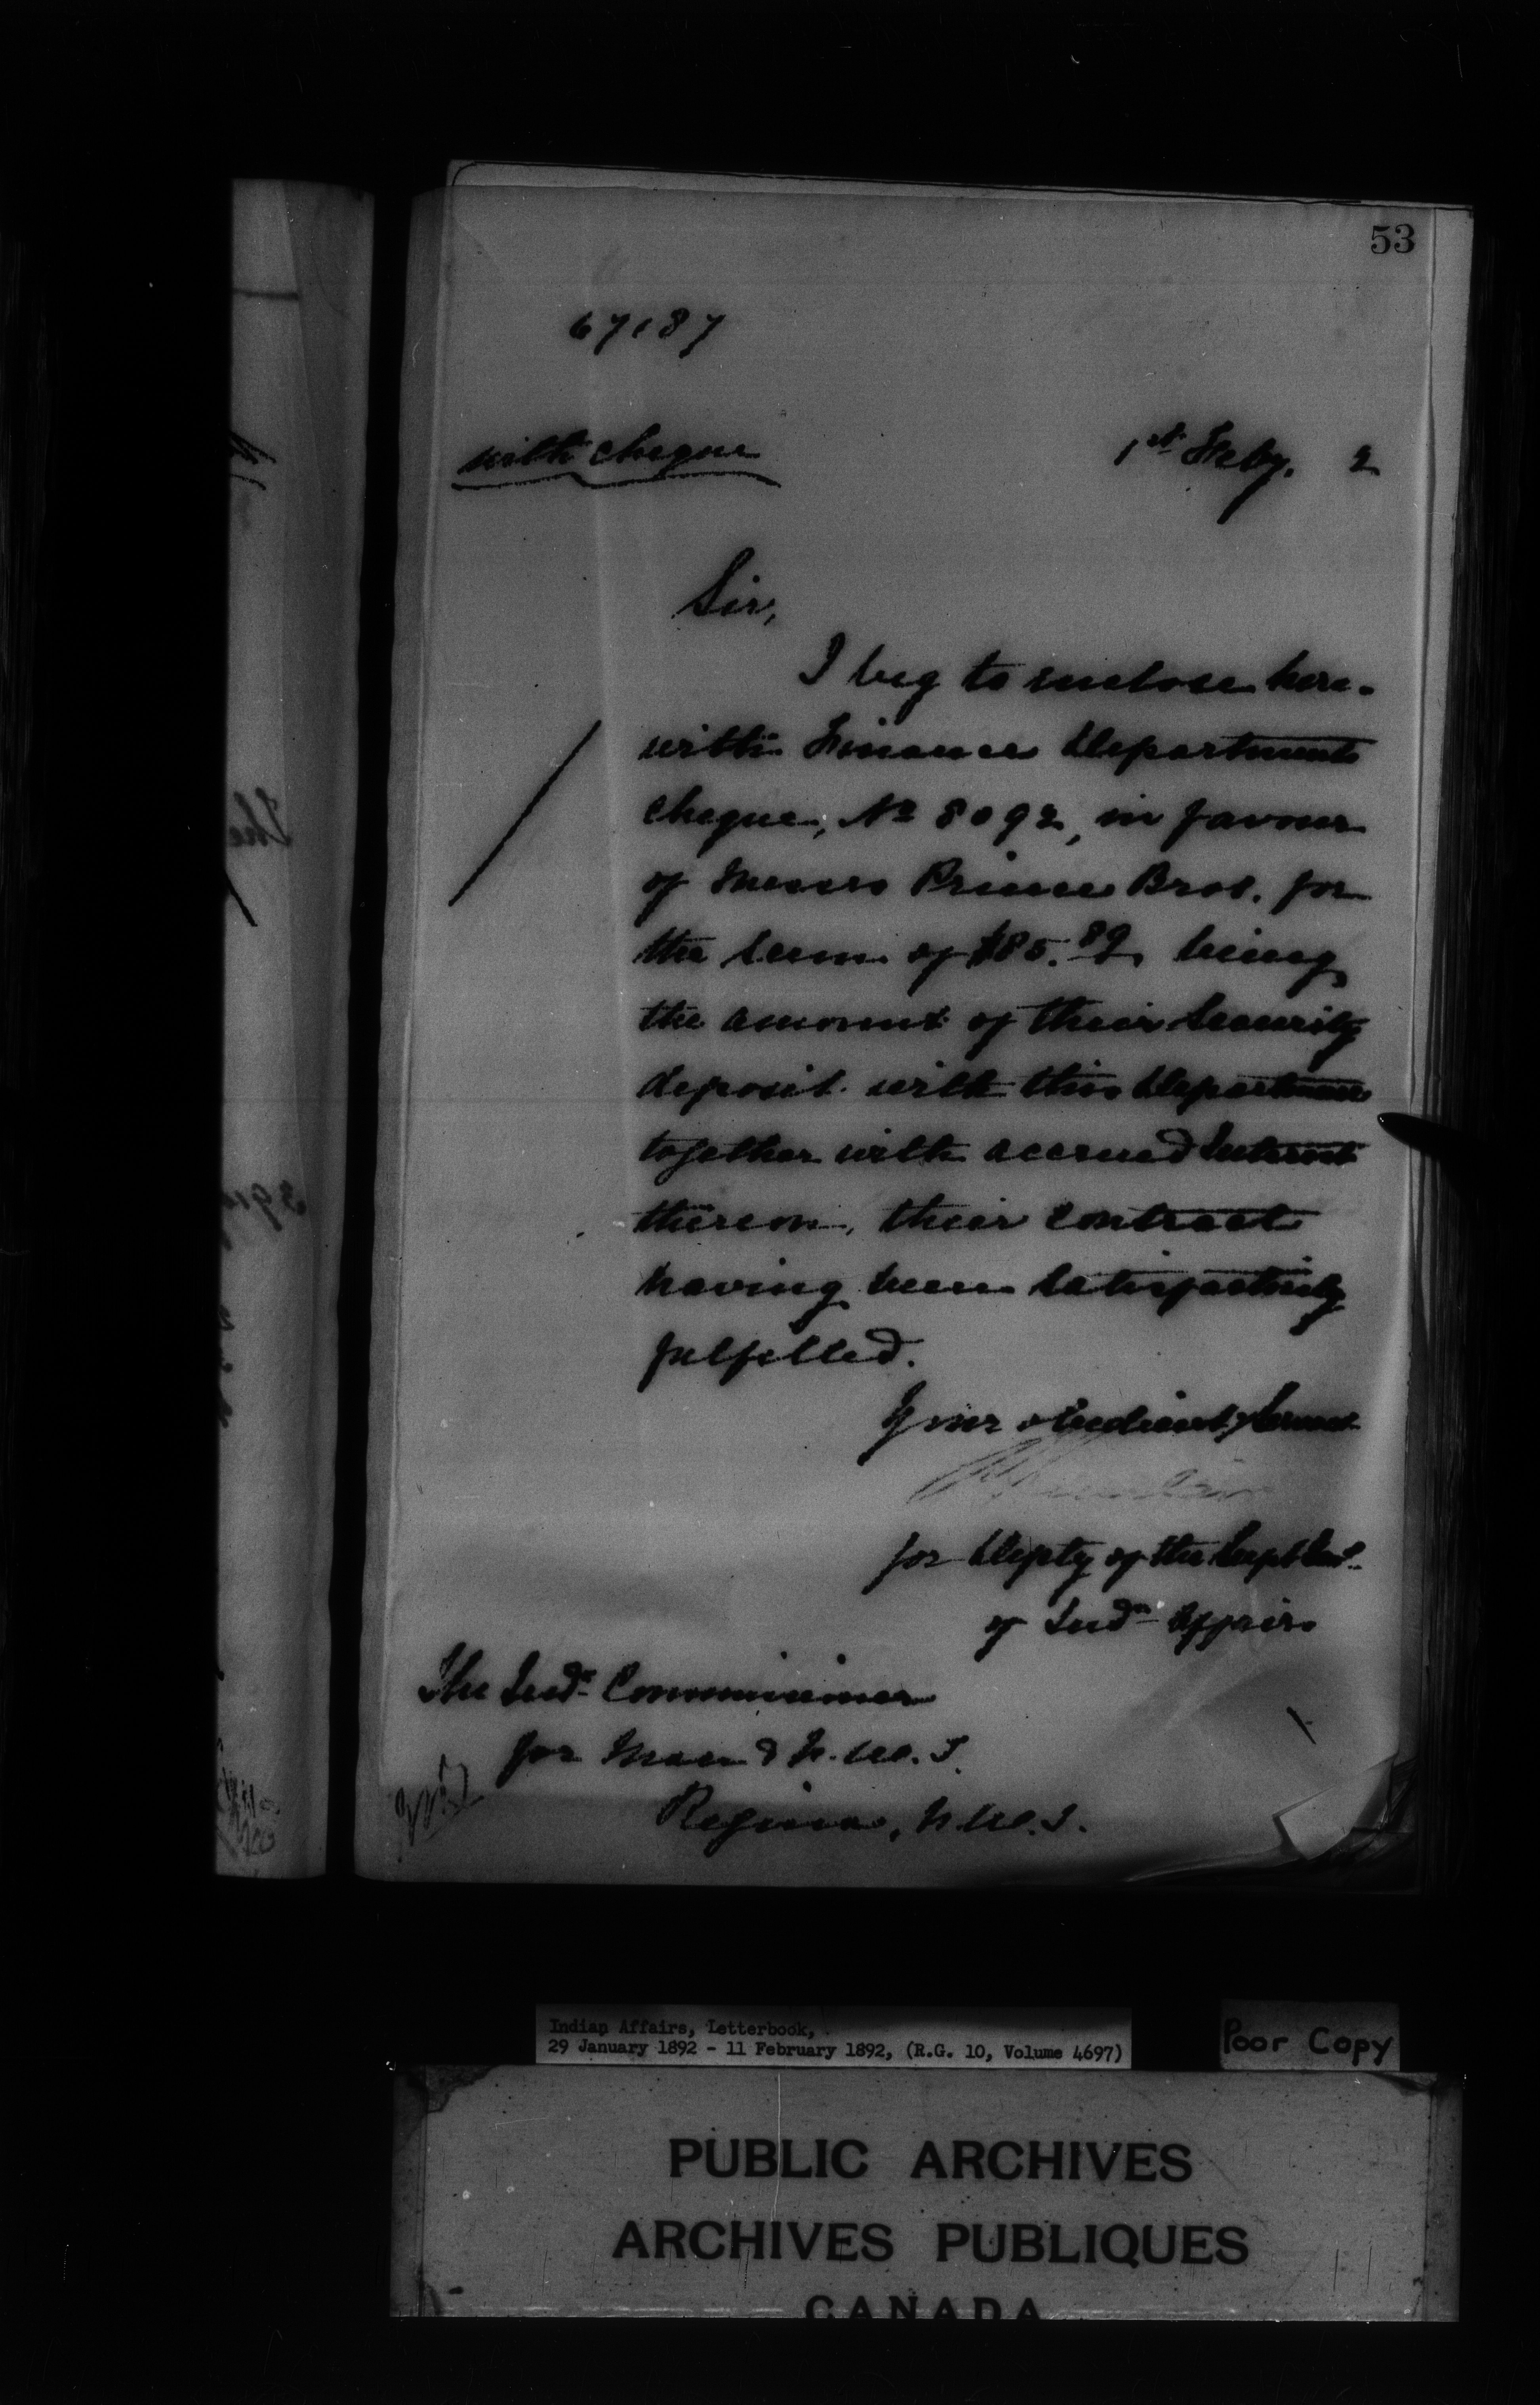 53
67187
with cheque
1st Feby. 2
Sir,
I beg to enclose here-
with Finance Department
cheque, No 8092, in favour
of Messrs Prince Bros. for
the sum of $85.89 being
the amount of their Security
deposit with this Department
together with accrued Interest
thereon, their contract
having been satisfactorily
fulfilled.
Your obedient servant
for Depty of the Supt Genl.
of Indn Affairs
The Indn Commissioner
for Man & N.W.T.
Regina, N.W.T.
The
Indian Affairs, Letterbook,
29 January 1892 - 11 February 1892, (R.G. 10, Volume 4697)
Poor Copy
PUBLIC ARCHIVES
ARCHIVES PUBLIQUES
CANADA